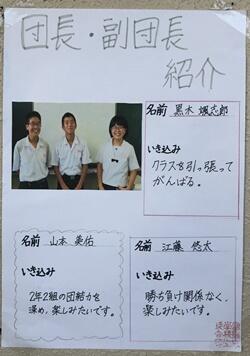 団長・副団長
紹介
名前 黒木 颯志郎
いき込み
クラスを引っ張って
がんばる。
名前 山本 美佑
いき込み
2年2組の団結力を
深め、楽しみたいです。
名前 江藤 悠太
いき込み
勝ち負け関係なく、
楽しみたいです。